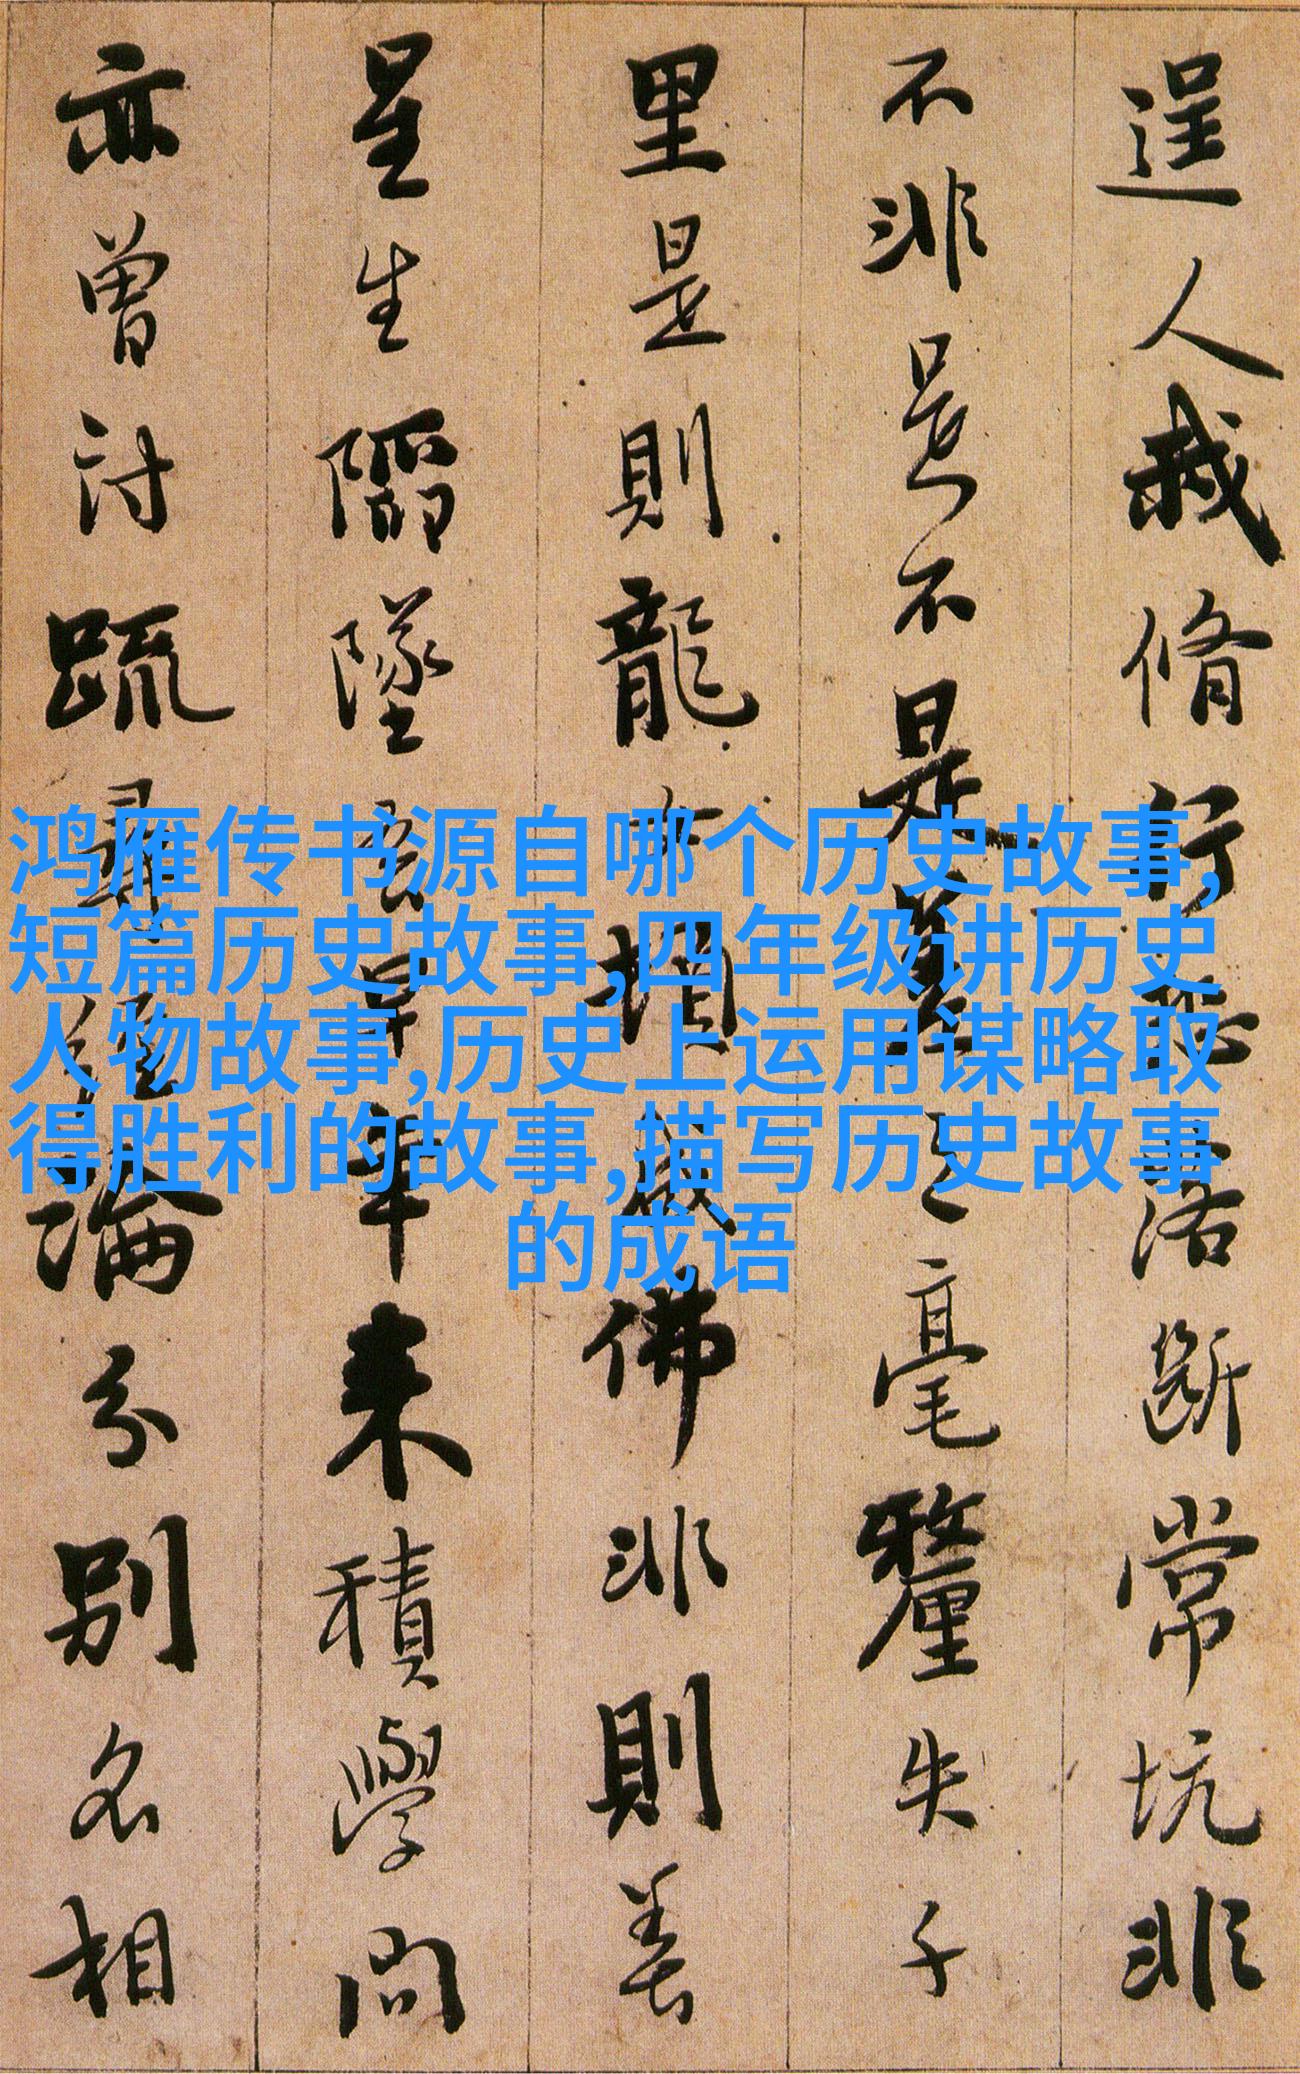 逞人我脩行恐落斷常坑非
不非是不是差之毫釐失千
里是則龍女頓成佛非則善
星生陷墜吾早年来積學問
亦曾討疏尋經論分別名相
鸿雁传书源自哪个历史故事,
短篇历史故事,四年级讲历史
人物故事,历史上运用谋略取
得胜利的故事,描写历史故事
的成语